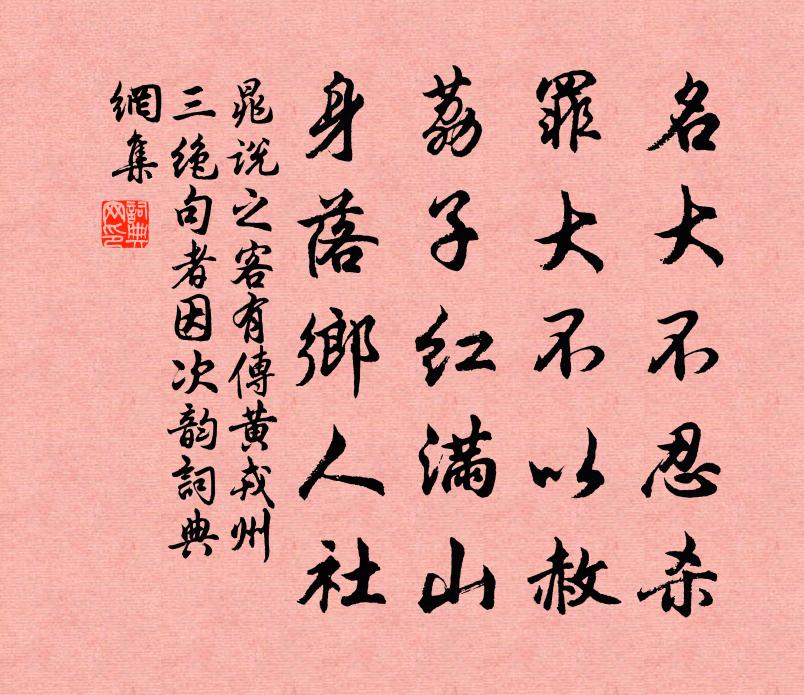 名大不忍杀
罪大不以赦
荔子红满山
身落鄉人社
晁说之客有傳黄戎州
三绝句者因次韵詞典
網集
詞典
网印